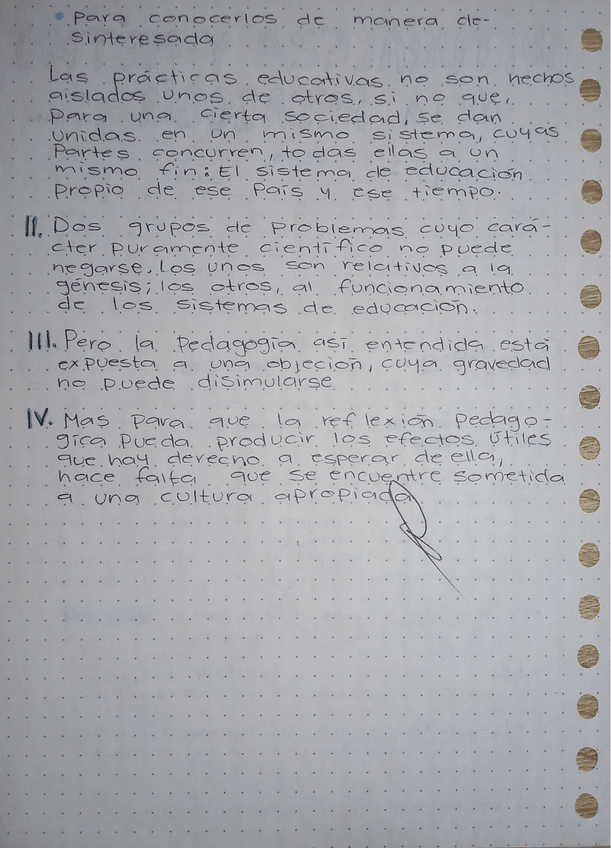 • Para conocerlos de manera de-
sinteresada
Las prácticas educativas no son hechos
aislados unos de otros, si no que,
Para una cierta sociedad, se dan
unidas en un mismo sistema, cuyas
Partes concurren, todas ellas a un
mismo fin: El sistema de educación
propio de ese País y ese tiempo.
II. Dos grupos de Problemas cuyo cará-
cter puramente científico no puede
negarse. Los unos son relativos a la
génesis; los otros, al funcionamiento
de los sistemas de educación.
III. Pero la Pedagogía así entendida está
expuesta a una objeción, cuya gravedad
no puede disimularse
IV. Mas Para que la reflexión Pedago-
gica Pueda producir los efectos útiles
que hay derecho a esperar de ella,
hace falta que se encuentre sometida
a una cultura apropiada